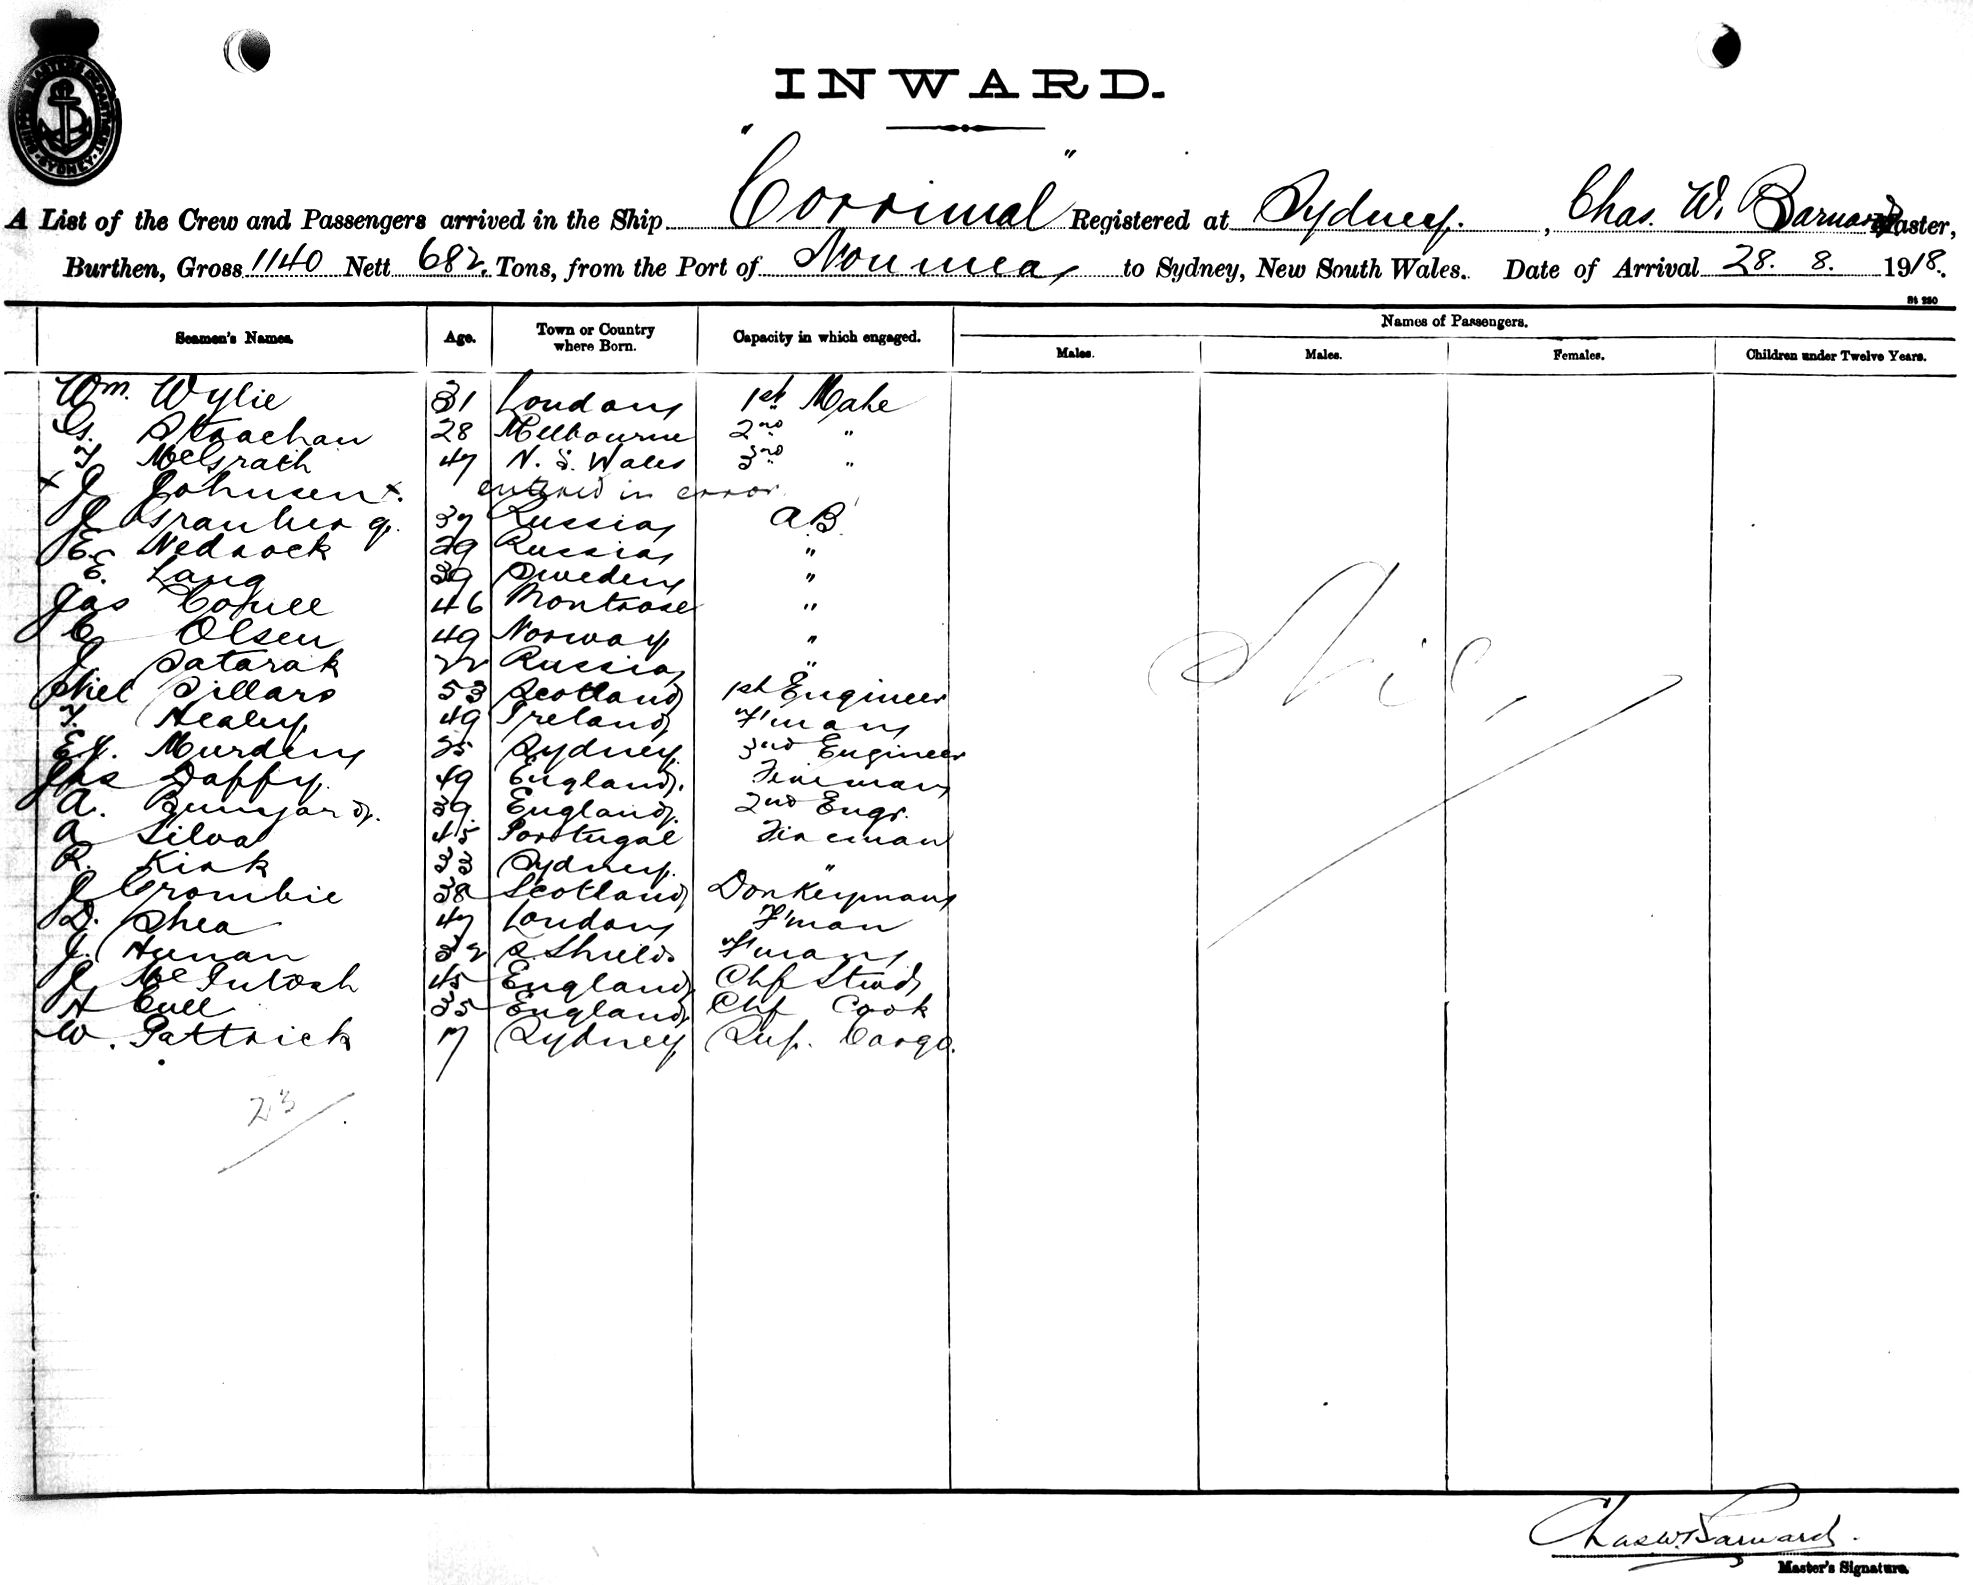 SHIPPING MASTER'S DEPARTMENT
SYDNEY
INWARD.
A List of the Crew and Passengers arrived in the Ship "Corrimal" Registered at Sydney, Chas. W. Barnard Master,
Burthen, Gross 1140 Nett 682 Tons, from the Port of Noumea to Sydney, New South Wales. Date of Arrival 28. 8. 1918.
St 250
Seamen's Names. Age. Town or Country where Born. Capacity in which engaged. Names of Passengers.
Males. Males. Females. Children under Twelve Years.
Wm. Wylie 31 London 1st Mate
G. Strachan 28 Melbourne 2nd "
T. McGrath 47 N. S. Wales 3rd "
x J Johnsen x. entered in error
J 37 Russia AB
E. Nedrock 29 Russia "
E. Lang 39 Sweden "
Jas 46 Montrose "
C Olsen 49 Norway "
J Satarak 22 Russia "
Niel Sillars 53 Scotland 1st Engineer
T. Healey 49 Ireland F'man
E. J. Murden 25 Sydney 3rd Engineer
Jas Daffy 49 England. Fireman
A. 39 England 2nd Engr.
A Silva 45 Portugal Fireman
R. Kirk 33 Sydney. "
J Crombie 38 Scotland Donkeyman
D. Shea 47 London F'man
J. Hunan 32 S. Shields F'man
J McIntosh 45 England Chf Stwd
H Cull 35 England Chf Cook
W. Pattrick Sydney Sup. Cargo.
Nil
23
Chas. W. Barnard.
Master's Signature.